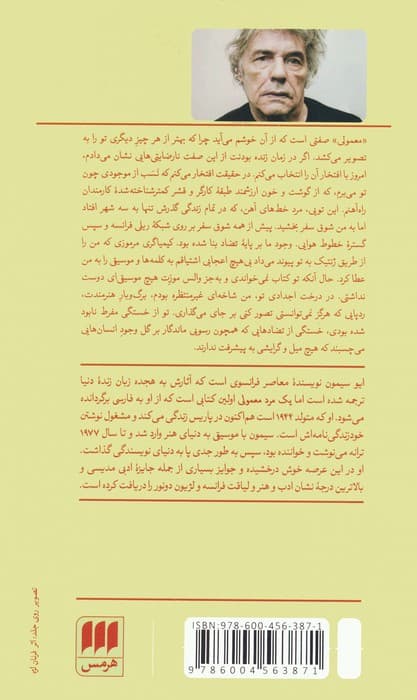 «معمولی» صفتی است که از آن خوشم می‌آید چرا که بهتر از هر چیز دیگری تو را به
تصویر می‌کشد. اگر در زمان زنده بودنت از این صفت نارضایتی‌هایی نشان می‌دادم،
امروز با افتخار آن را انتخاب می‌کنم. در حقیقت افتخار می‌کنم که نَسَب از موجودی چون
تو می‌برم، که از گوشت و خون ارزشمند طبقهٔ کارگر و قشر کمترشناخته‌شدهٔ کارمندان
راه‌آهنم. این تویی، مرد خط‌های آهن، که در تمام زندگی گذرش تنها به سه شهر افتاد
اما به من شوق سفر بخشید. پیش از همه شوق سفر بر روی شبکهٔ ریلی فرانسه و سپس
گسترهٔ خطوط هوایی. وجود ما بر پایهٔ تضاد بنا شده بود. کیمیاگری مرموزی که من را
از طریق ژنتیک به تو پیوند می‌داد بی‌هیچ اعجابی اشتیاقم به کلمه‌ها و موسیقی را به من
عطا کرد. حال آنکه تو کتاب نمی‌خواندی و به‌جز والس موزِت هیچ موسیقی‌ای دوست
نداشتی. در درخت اجدادی تو، من شاخه‌ای غیرمنتظره بودم، برگ‌وبارِ هنرمندت،
ردپایی که هرگز نمی‌توانستی تصور کنی بر جای می‌گذاری. تو از خستگی مفرط نابود
شده بودی، خستگی از تضادهایی که همچون رسوبی ماندگار بر گل وجود انسان‌هایی
می‌چسبند که هیچ میل و گرایشی به پیشرفت ندارند.
ایو سیمون نویسندهٔ معاصر فرانسوی است که آثارش به هجده زبان زندهٔ دنیا
ترجمه شده است اما یک مرد معمولی اولین کتابی است که از او به فارسی برگردانده
می‌شود. او که متولد ۱۹۴۴ است هم‌اکنون در پاریس زندگی می‌کند و مشغول نوشتن
خودزندگی‌نامه‌اش است. سیمون با موسیقی به دنیای هنر وارد شد و تا سال ۱۹۷۷
ترانه می‌نوشت و خواننده بود، سپس به طور جدی پا به دنیای نویسندگی گذاشت.
او در این عرصه خوش درخشیده و جوایز بسیاری از جمله جایزهٔ ادبی مدیسی و
بالاترین درجهٔ نشان ادب و هنر و لیاقت فرانسه و لژیون دونور را دریافت کرده است.
تصویر روی جلد: اثر
هرمس
ISBN: 978-600-456-387-1
9 786004 563871